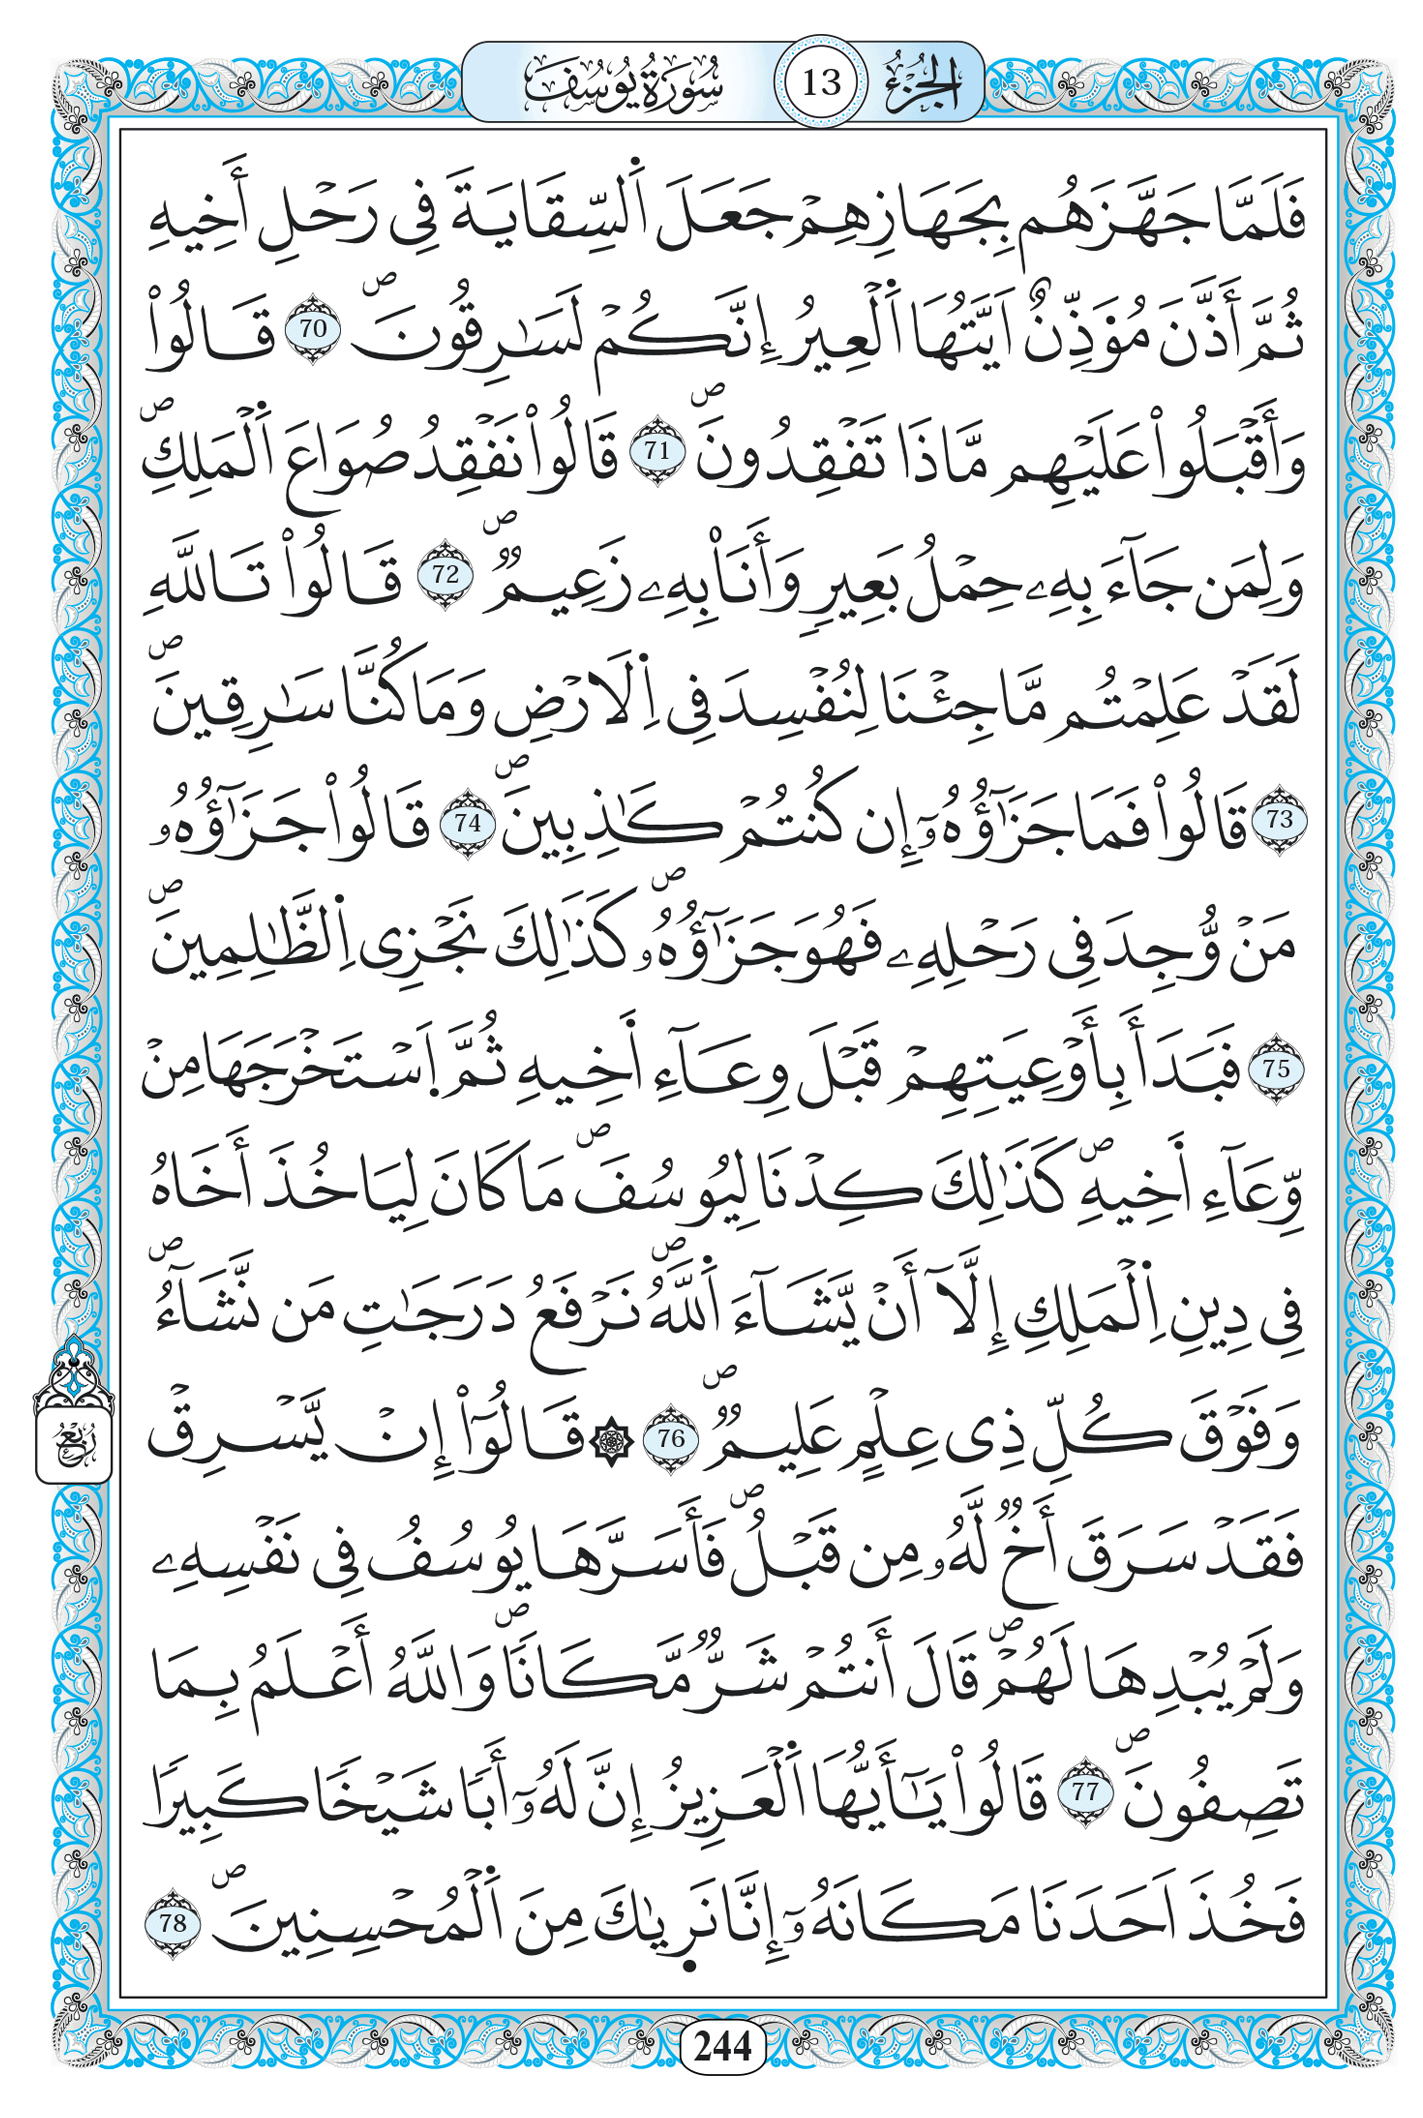 الجزء 13 سورة يوسف
فَلَمَّا جَهَّزَهُم بِجَهَازِهِمْ جَعَلَ اَ۬لسِّقَايَةَ فِے رَحْلِ أَخِيهِ
ثُمَّ أَذَّنَ مُؤَذِّنٌ اَيَّتُهَا اَ۬لْعِيرُ إِنَّكُمْ لَسَٰرِقُونَۖ 70 قَالُواْ
وَأَقْبَلُواْ عَلَيْهِم مَّاذَا تَفْقِدُونَۖ 71 قَالُواْ نَفْقِدُ صُوَاعَ اَ۬لْمَلِكِۖ
وَلِمَن جَآءَ بِهِۦ حِمْلُ بَعِيرٖ وَأَنَا۠ بِهِۦ زَعِيمٞۖ 72 قَالُواْ تَاللَّهِ
لَقَدْ عَلِمْتُم مَّا جِئْنَا لِنُفْسِدَ فِے اِ۬لَارْضِ وَمَا كُنَّا سَٰرِقِينَۖ
73 قَالُواْ فَمَا جَزَٰٓؤُهُۥٓ إِن كُنتُمْ كَٰذِبِينَۖ 74 قَالُواْ جَزَٰٓؤُهُۥ
مَنْ وُّجِدَ فِے رَحْلِهِۦ فَهُوَ جَزَٰٓؤُهُۥۖ كَذَٰلِكَ نَجْزِے اِ۬لظَّٰلِمِينَۖ
75 فَبَدَأَ بِأَوْعِيَتِهِمْ قَبْلَ وِعَآءِ اَ۬خِيهِ ثُمَّ اَ۪سْتَخْرَجَهَا مِنْ
وِّعَآءِ اَ۬خِيهِۖ كَذَٰلِكَ كِدْنَا لِيُوسُفَۖ مَا كَانَ لِيَاخُذَ أَخَاهُ
فِے دِينِ اِ۬لْمَلِكِ إِلَّآ أَنْ يَّشَآءَ اَ۬للَّهُۖ نَرْفَعُ دَرَجَٰتِ مَن نَّشَآءُۖ
وَفَوْقَ كُلِّ ذِے عِلْمٍ عَلِيمٞۖ 76 ۞ قَالُوٓاْ إِنْ يَّسْرِقْ
ربع
فَقَدْ سَرَقَ أَخٞ لَّهُۥ مِن قَبْلُۖ فَأَسَرَّهَا يُوسُفُ فِے نَفْسِهِۦ
وَلَمْ يُبْدِهَا لَهُمْۖ قَالَ أَنتُمْ شَرّٞ مَّكَاناٗۖ وَاللَّهُ أَعْلَمُ بِمَا
تَصِفُونَۖ 77 قَالُواْ يَٰٓأَيُّهَا اَ۬لْعَزِيزُ إِنَّ لَهُۥٓ أَباٗ شَيْخاٗ كَبِيراٗ
فَخُذَ اَحَدَنَا مَكَانَهُۥٓ إِنَّا نَر۪يٰكَ مِنَ اَ۬لْمُحْسِنِينَۖ 78
244